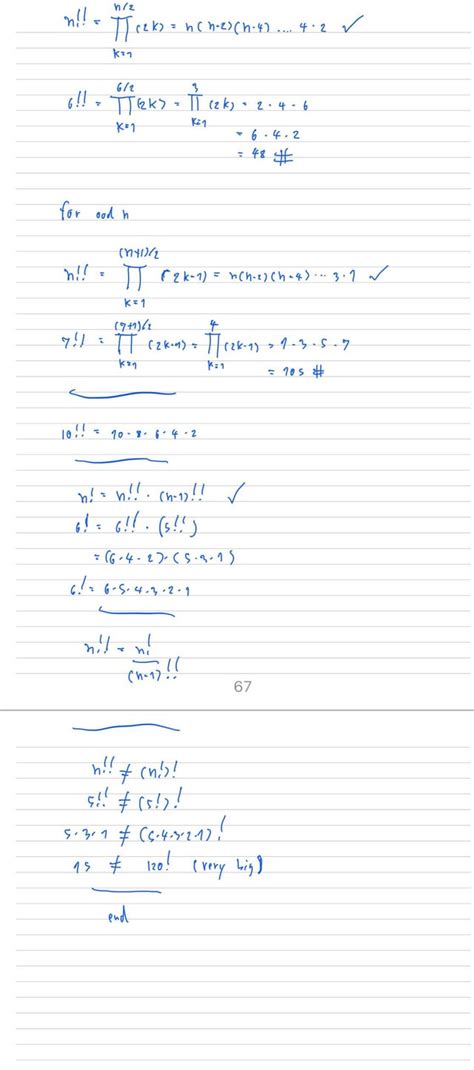 n!! = ∏_{k=1}^{n/2} (2k) = n(n-2)(n-4).... 4·2 ✓
6!! = ∏_{k=1}^{6/2} (2k) = ∏_{k=1}^{3} (2k) = 2·4·6
= 6·4·2
= 48 #
for odd n
n!! = ∏_{k=1}^{(n+1)/2} (2k-1) = n(n-2)(n-4)... 3·1 ✓
7!! = ∏_{k=1}^{(7+1)/2} (2k-1) = ∏_{k=1}^{4} (2k-1) = 1·3·5·7
= 105 #
10!! = 10·8·6·4·2
n! = n!!·(n-1)!! ✓
6! = 6!!·(5!!)
= (6·4·2)·(5·3·1)
6! = 6·5·4·3·2·1
n!! = n!/(n-1)!!
67
n!! ≠ (n!)!
5!! ≠ (5!)!
5·3·1 ≠ (5·4·3·2·1)!
15 ≠ 120! (very big)
end